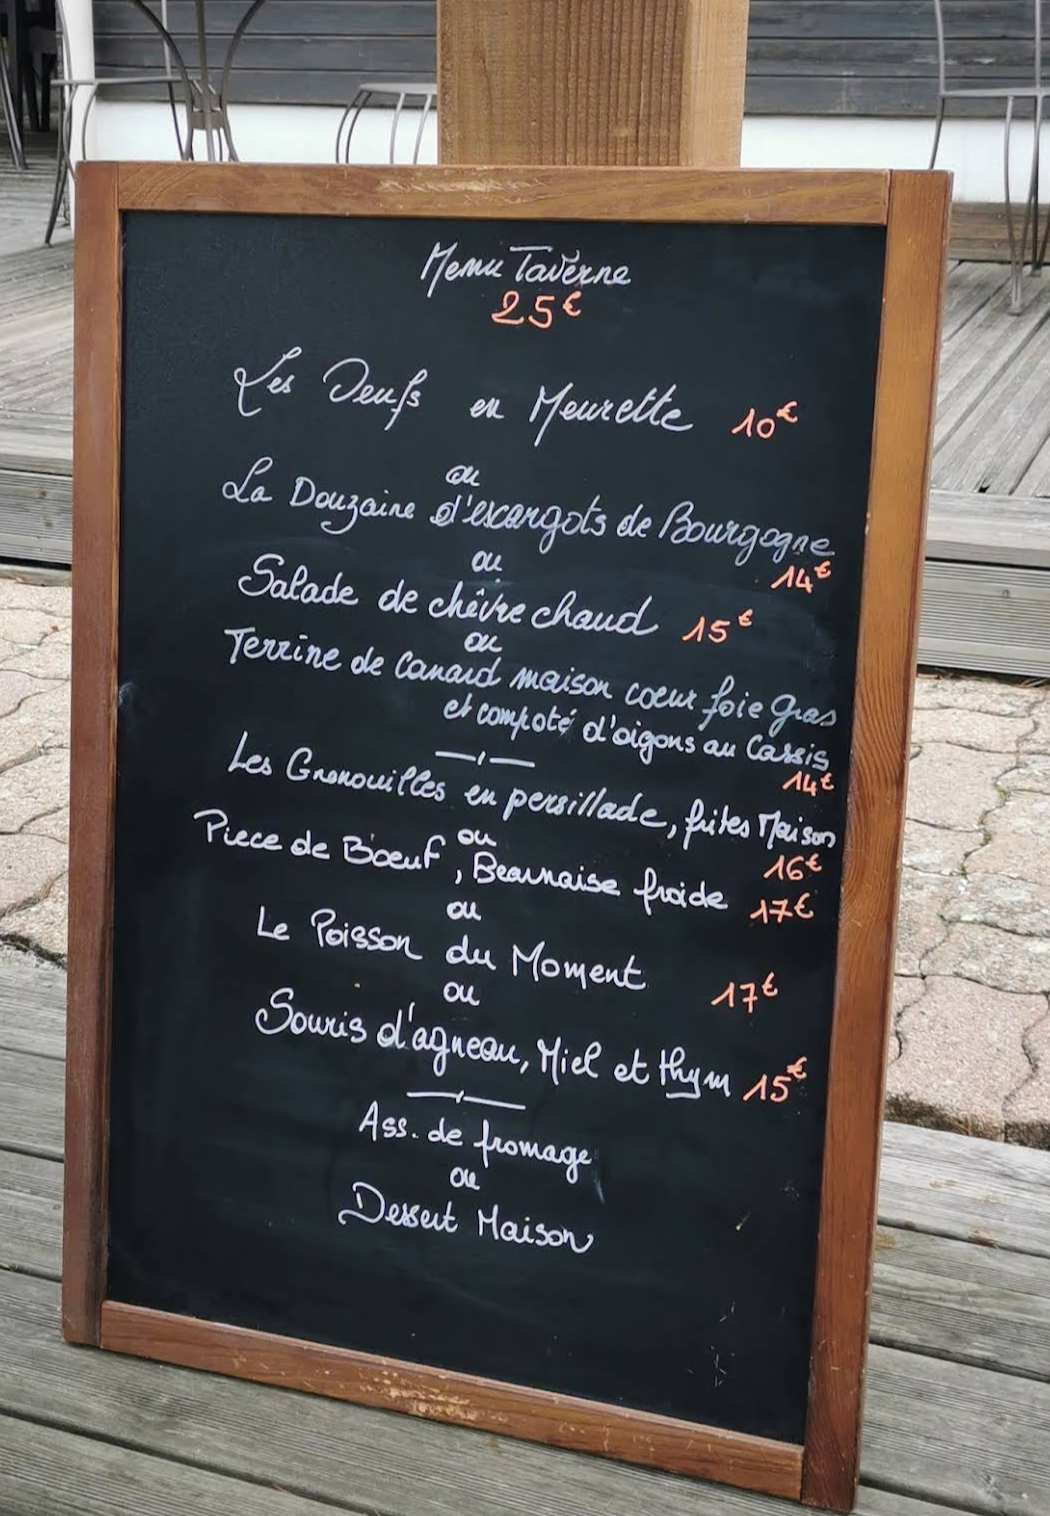 Menu Taverne
25€
Les Oeufs en Meurette 10€
ou
La Douzaine d'escargots de Bourgogne
14€
ou
Salade de chêvre chaud 15€
ou
Terrine de Canard maison coeur foie gras
et compoté d'oigons au Cassis
14€
Les Grenouilles en persillade, frites Maison
16€
ou
Piece de Boeuf, Bearnaise froide 17€
ou
Le Poisson du Moment 17€
ou
Souris d'agneau, Miel et thym 15€
Ass. de fromage
ou
Dessert Maison